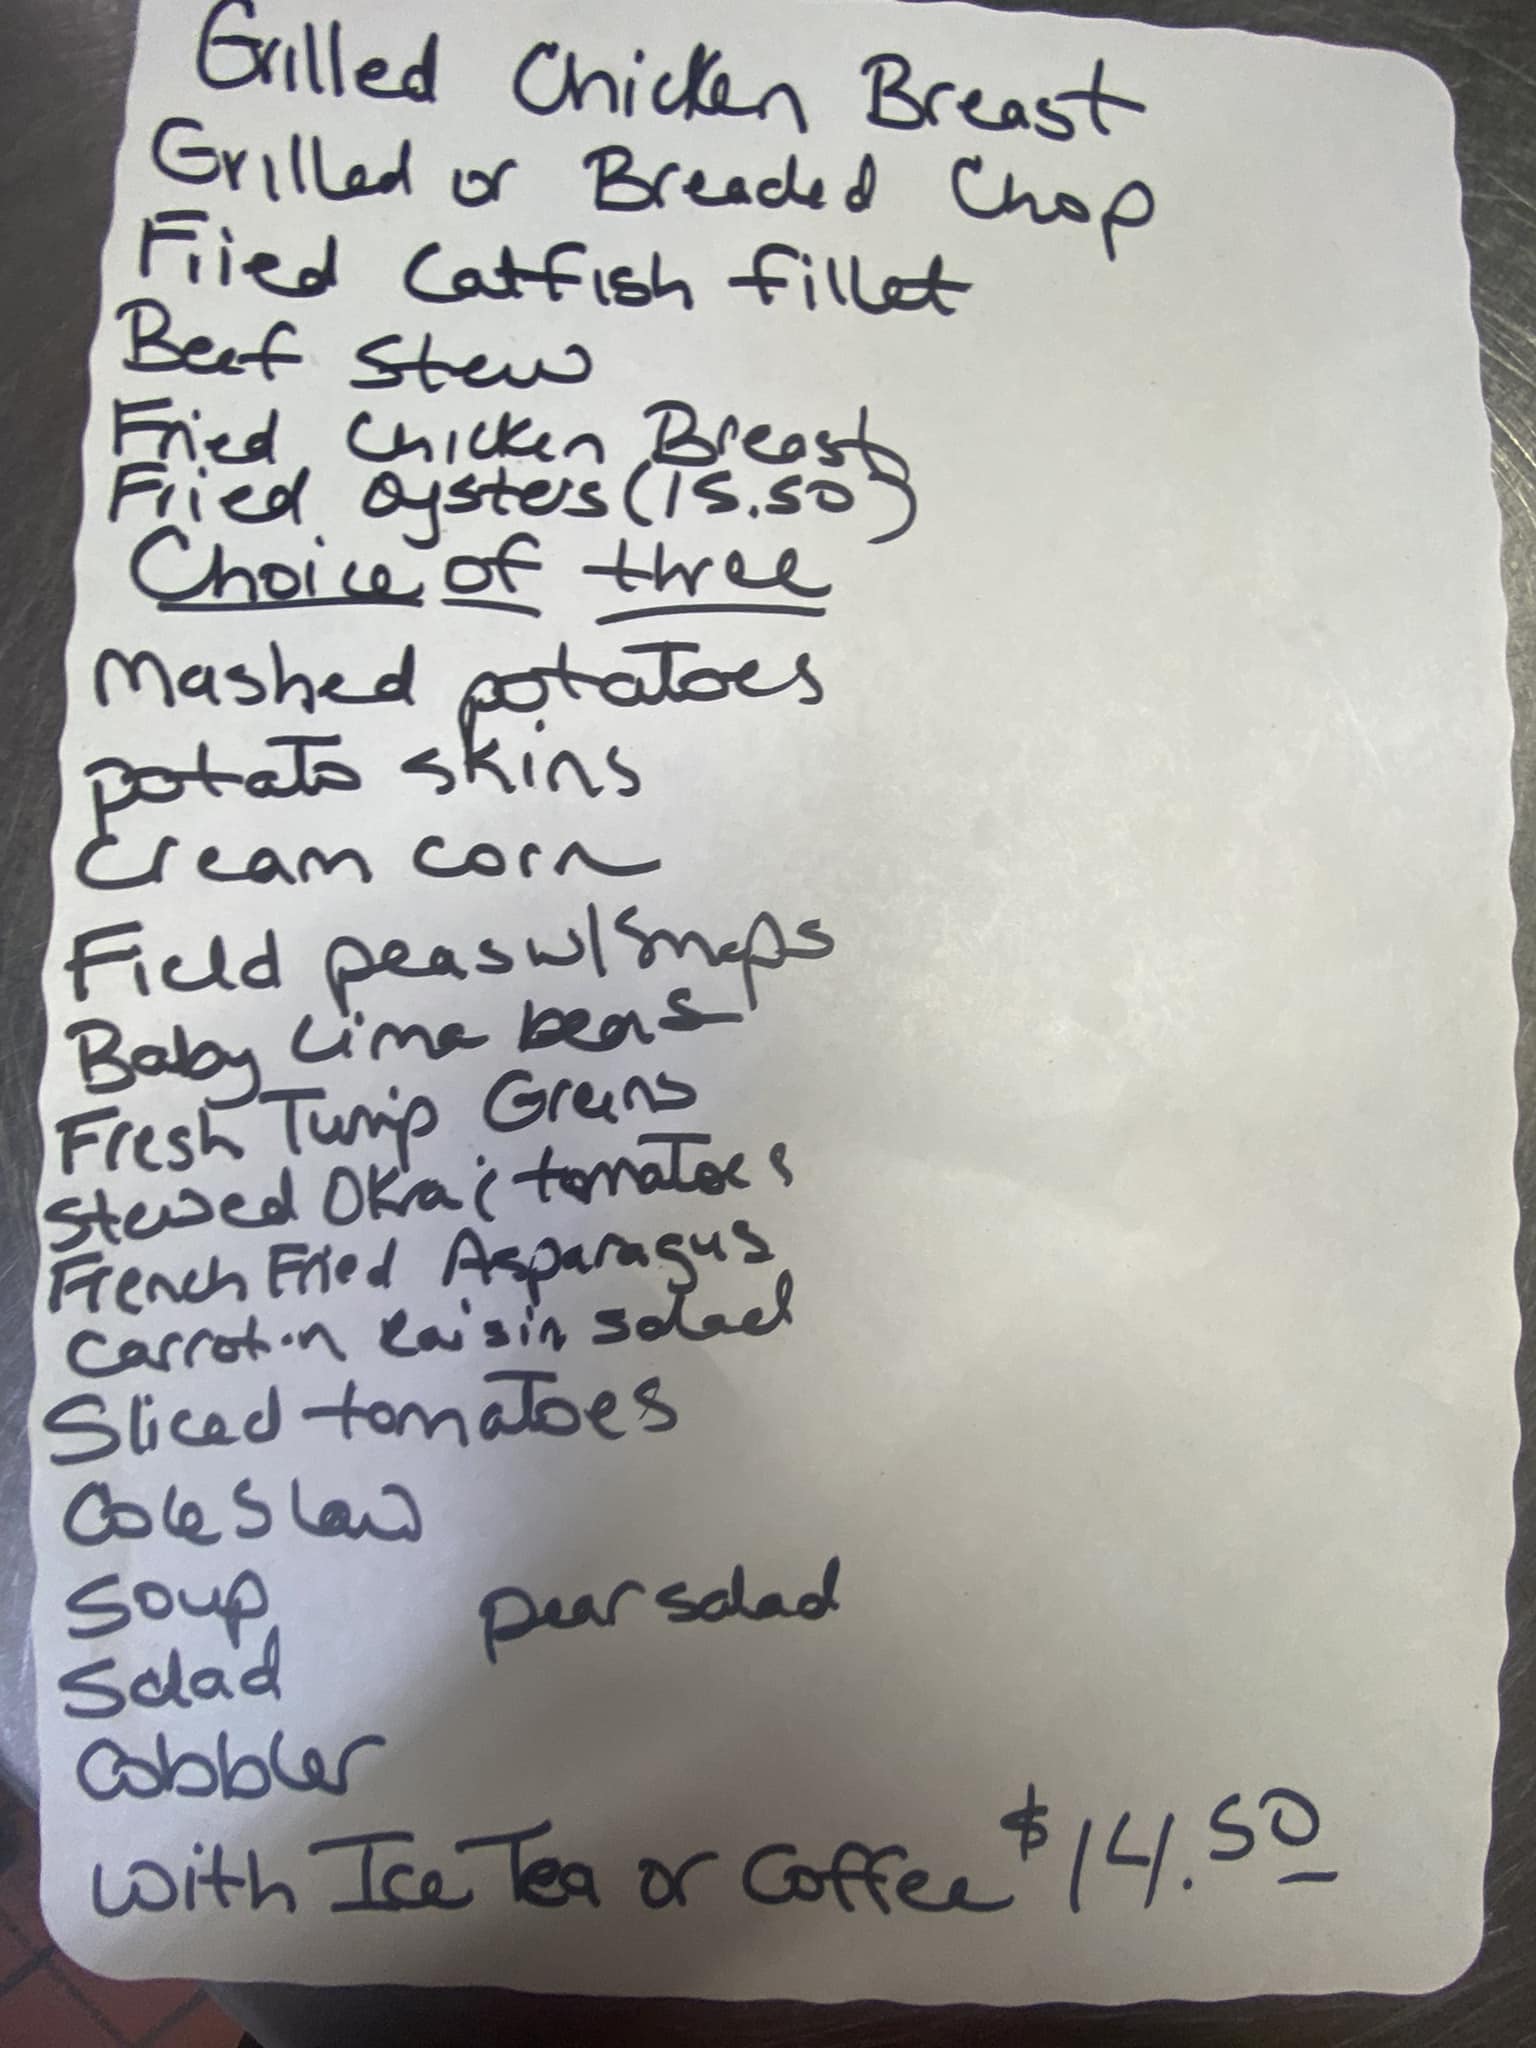 Grilled Chicken Breast
Grilled or Breaded Chop
Fried Catfish fillet
Beef Stew
Fried Chicken Breast
Fried Oysters (15.50)
Choice of three
Mashed potatoes
potato skins
Cream corn
Field peas w/ Snaps
Baby Lima beans
Fresh Turnip Greens
Stewed Okra & tomatoes
French Fried Asparagus
Carrot-n Raisin salad
Sliced tomatoes
Cole Slaw
Soup pear salad
Salad
Cobbler
with Ice Tea or Coffee $14.50